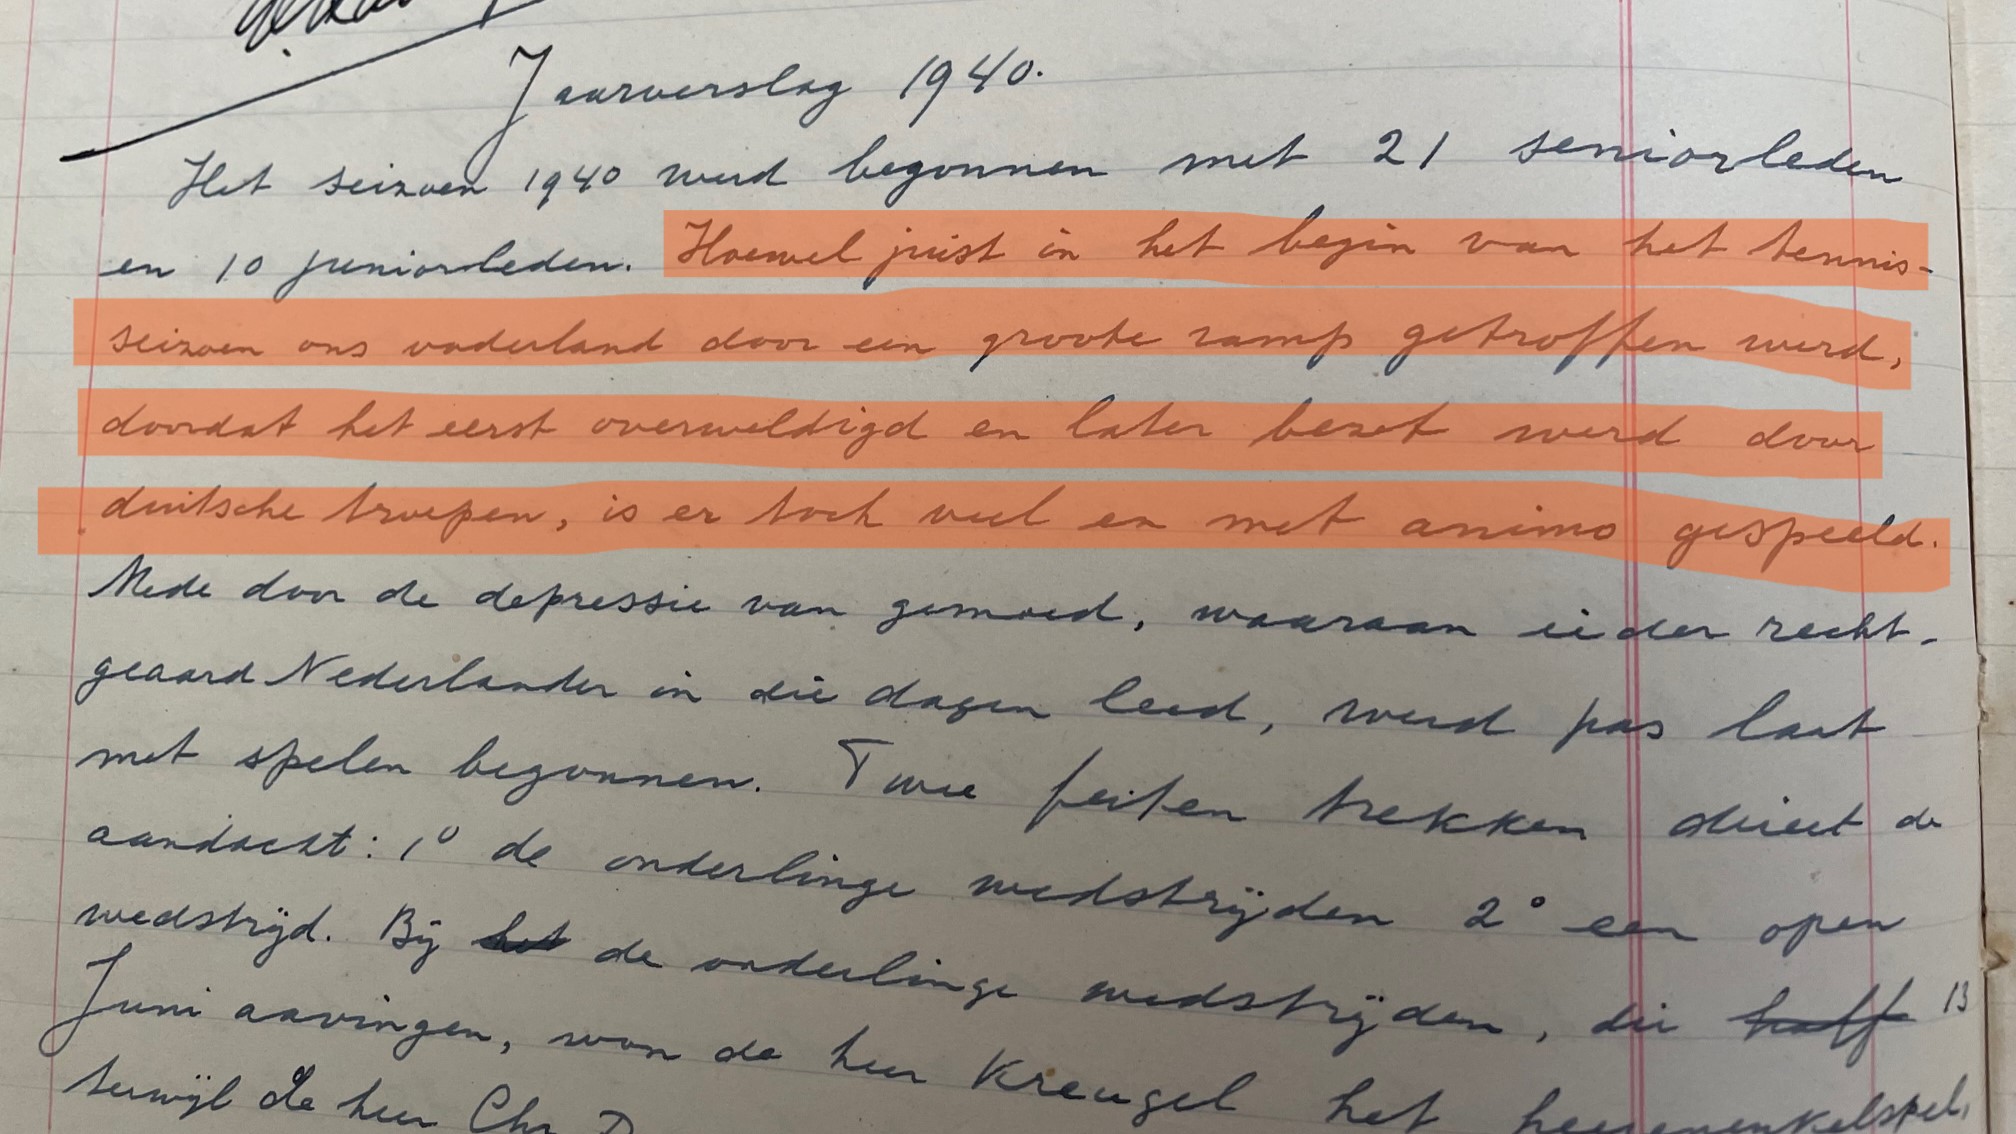 Jaarverslag 1940.
Het seizoen 1940 werd begonnen met 21 seniorleden
en 10 juniorleden. Hoewel juist in het begin van het tennis-
seizoen ons vaderland door een groote ramp getroffen werd,
doordat het eerst overweldigd en later bezet werd door
duitsche troepen, is er toch veel en met animo gespeeld.
Mede door de depressie van gemoed, waaraan ieder recht-
geaard Nederlander in die dagen leed, werd pas laat
met spelen begonnen. Twee feiten trekken direct de
aandacht: 1° de onderlinge wedstrijden 2° een open
wedstrijd. Bij het de onderlinge wedstrijden, die half 13
Juni aavingen, won de heer Kreugel het heerenenkelspel,
terwijl de heer Chr